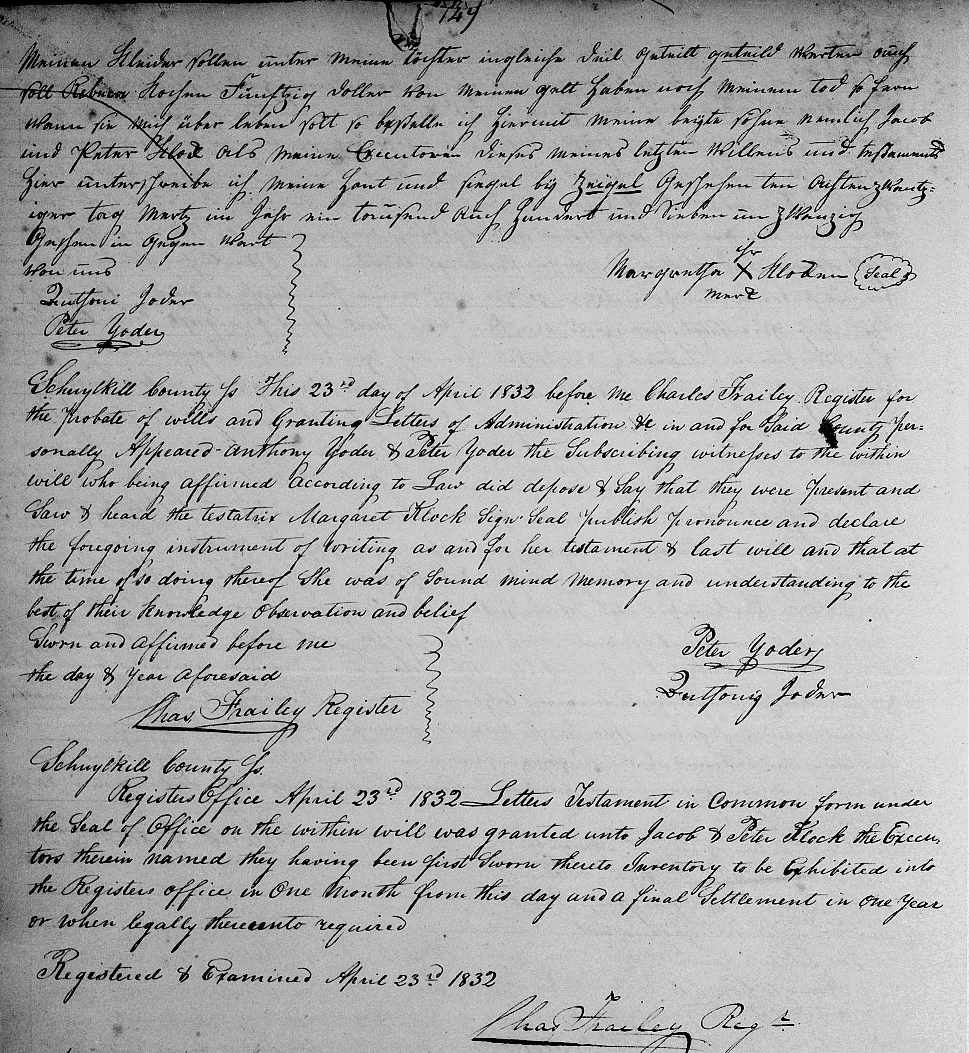 149
Meinen Kleider sollen unter meine töchter in gleiche deil geteilt geteild werten auch
soll Rebeca Kochen Fünftzig doller von meinen gelt haben noch meinem tod so fern
wann sie mich über leben soll so bestelle ich hiermit meine beyte söhne nemlich Jacob
und Peter Klock als meine Executoren dieses meines letzten Willens und testaments
hier unterschreibe ich meine Hant und siegel bey Zeigel Geschehen ten achten zwentz-
iger tag Mertz im Jahr ein tousend Auch Hundert und sieben un zwanzig
Geschen in gegen wart
von uns
Anthoni Joder
Peter Yoder
Margretha ihr X Kloken Seal
merk
Schuylkill County Ss This 23rd day of April 1832 before me Charles Frailey Register for
the Probate of wills and Granting Letters of Administration &c in and for Said County Per-
sonally Appeared Anthony Yoder & Peter Yoder the Subscribing witnesses to the within
will who being affirmed according to Law did depose & Say that they were present and
Saw & heard the testatrix Margaret Klock Sign Seal publish pronounce and declare
the foregoing instrument of writing as and for her testament & last will and that at
the time of so doing thereof She was of Sound mind Memory and understanding to the
best of their knowledge Observation and belief
Sworn and affirmed before me
the day & Year aforesaid
Chas. Frailey Register
Peter Yoder
Anthonig Joder
Schuylkill County Ss.
Registers Office April 23rd 1832 Letters Testament in Common form under
the Seal of Office on the within will was granted unto Jacob & Peter Klock the Execu-
tors therein named they having been first Sworn thereto Inventory to be Exhibited into
the Registers office in One Month from this day and a final Settlement in One Year
or when legally thereunto required
Registered & Examined April 23rd 1832
Chas Frailey Regr